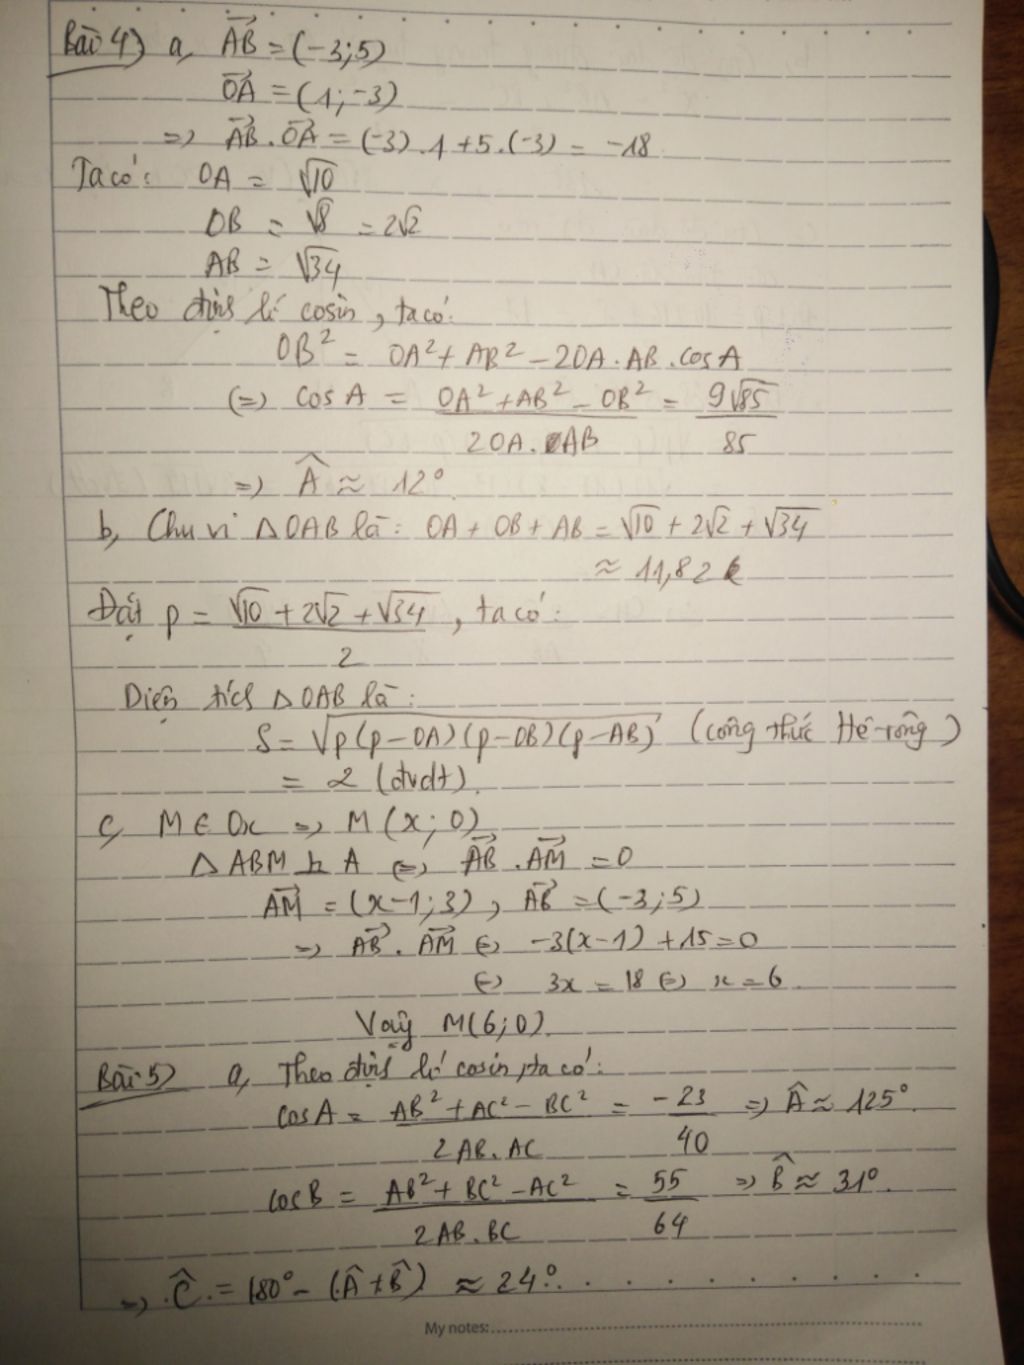 Bài 4) a, AB→ = (-3;5)
OA→ = (1;-3)
=> AB→.OA→ = (-3).1 + 5.(-3) = -18
Ta có: OA = √10
OB = √8 = 2√2
AB = √34
Theo định lí cosin, ta có:
OB² = OA² + AB² - 2OA.AB.cosA
(=) cosA = (OA² + AB² - OB²)/(2OA.AB) = 9√85/85
=> Â ≈ 12°.
b, Chu vi △OAB là: OA + OB + AB = √10 + 2√2 + √34
≈ 11,82
Đặt p = (√10 + 2√2 + √34)/2, ta có:
Diện tích △OAB là:
S = √p(p-OA)(p-OB)(p-AB) (công thức Hê-rông)
= 2 (đvdt).
c, M ∈ Ox => M(x; 0)
△ABM ⊥ A (=) AB→.AM→ = 0
AM→ = (x-1;3), AB→ = (-3;5)
=> AB→.AM→ (=) -3(x-1) + 15 = 0
(=) 3x = 18 (=) x = 6.
Vậy M(6;0).
Bài 5) a, Theo định lí cosin, ta có:
cosA = (AB² + AC² - BC²)/(2AB.AC) = -23/40 => Â ≈ 125°.
cosB = (AB² + BC² - AC²)/(2AB.BC) = 55/64 => B̂ ≈ 31°.
=> Ĉ = 180° - (Â + B̂) ≈ 24°.
My notes: